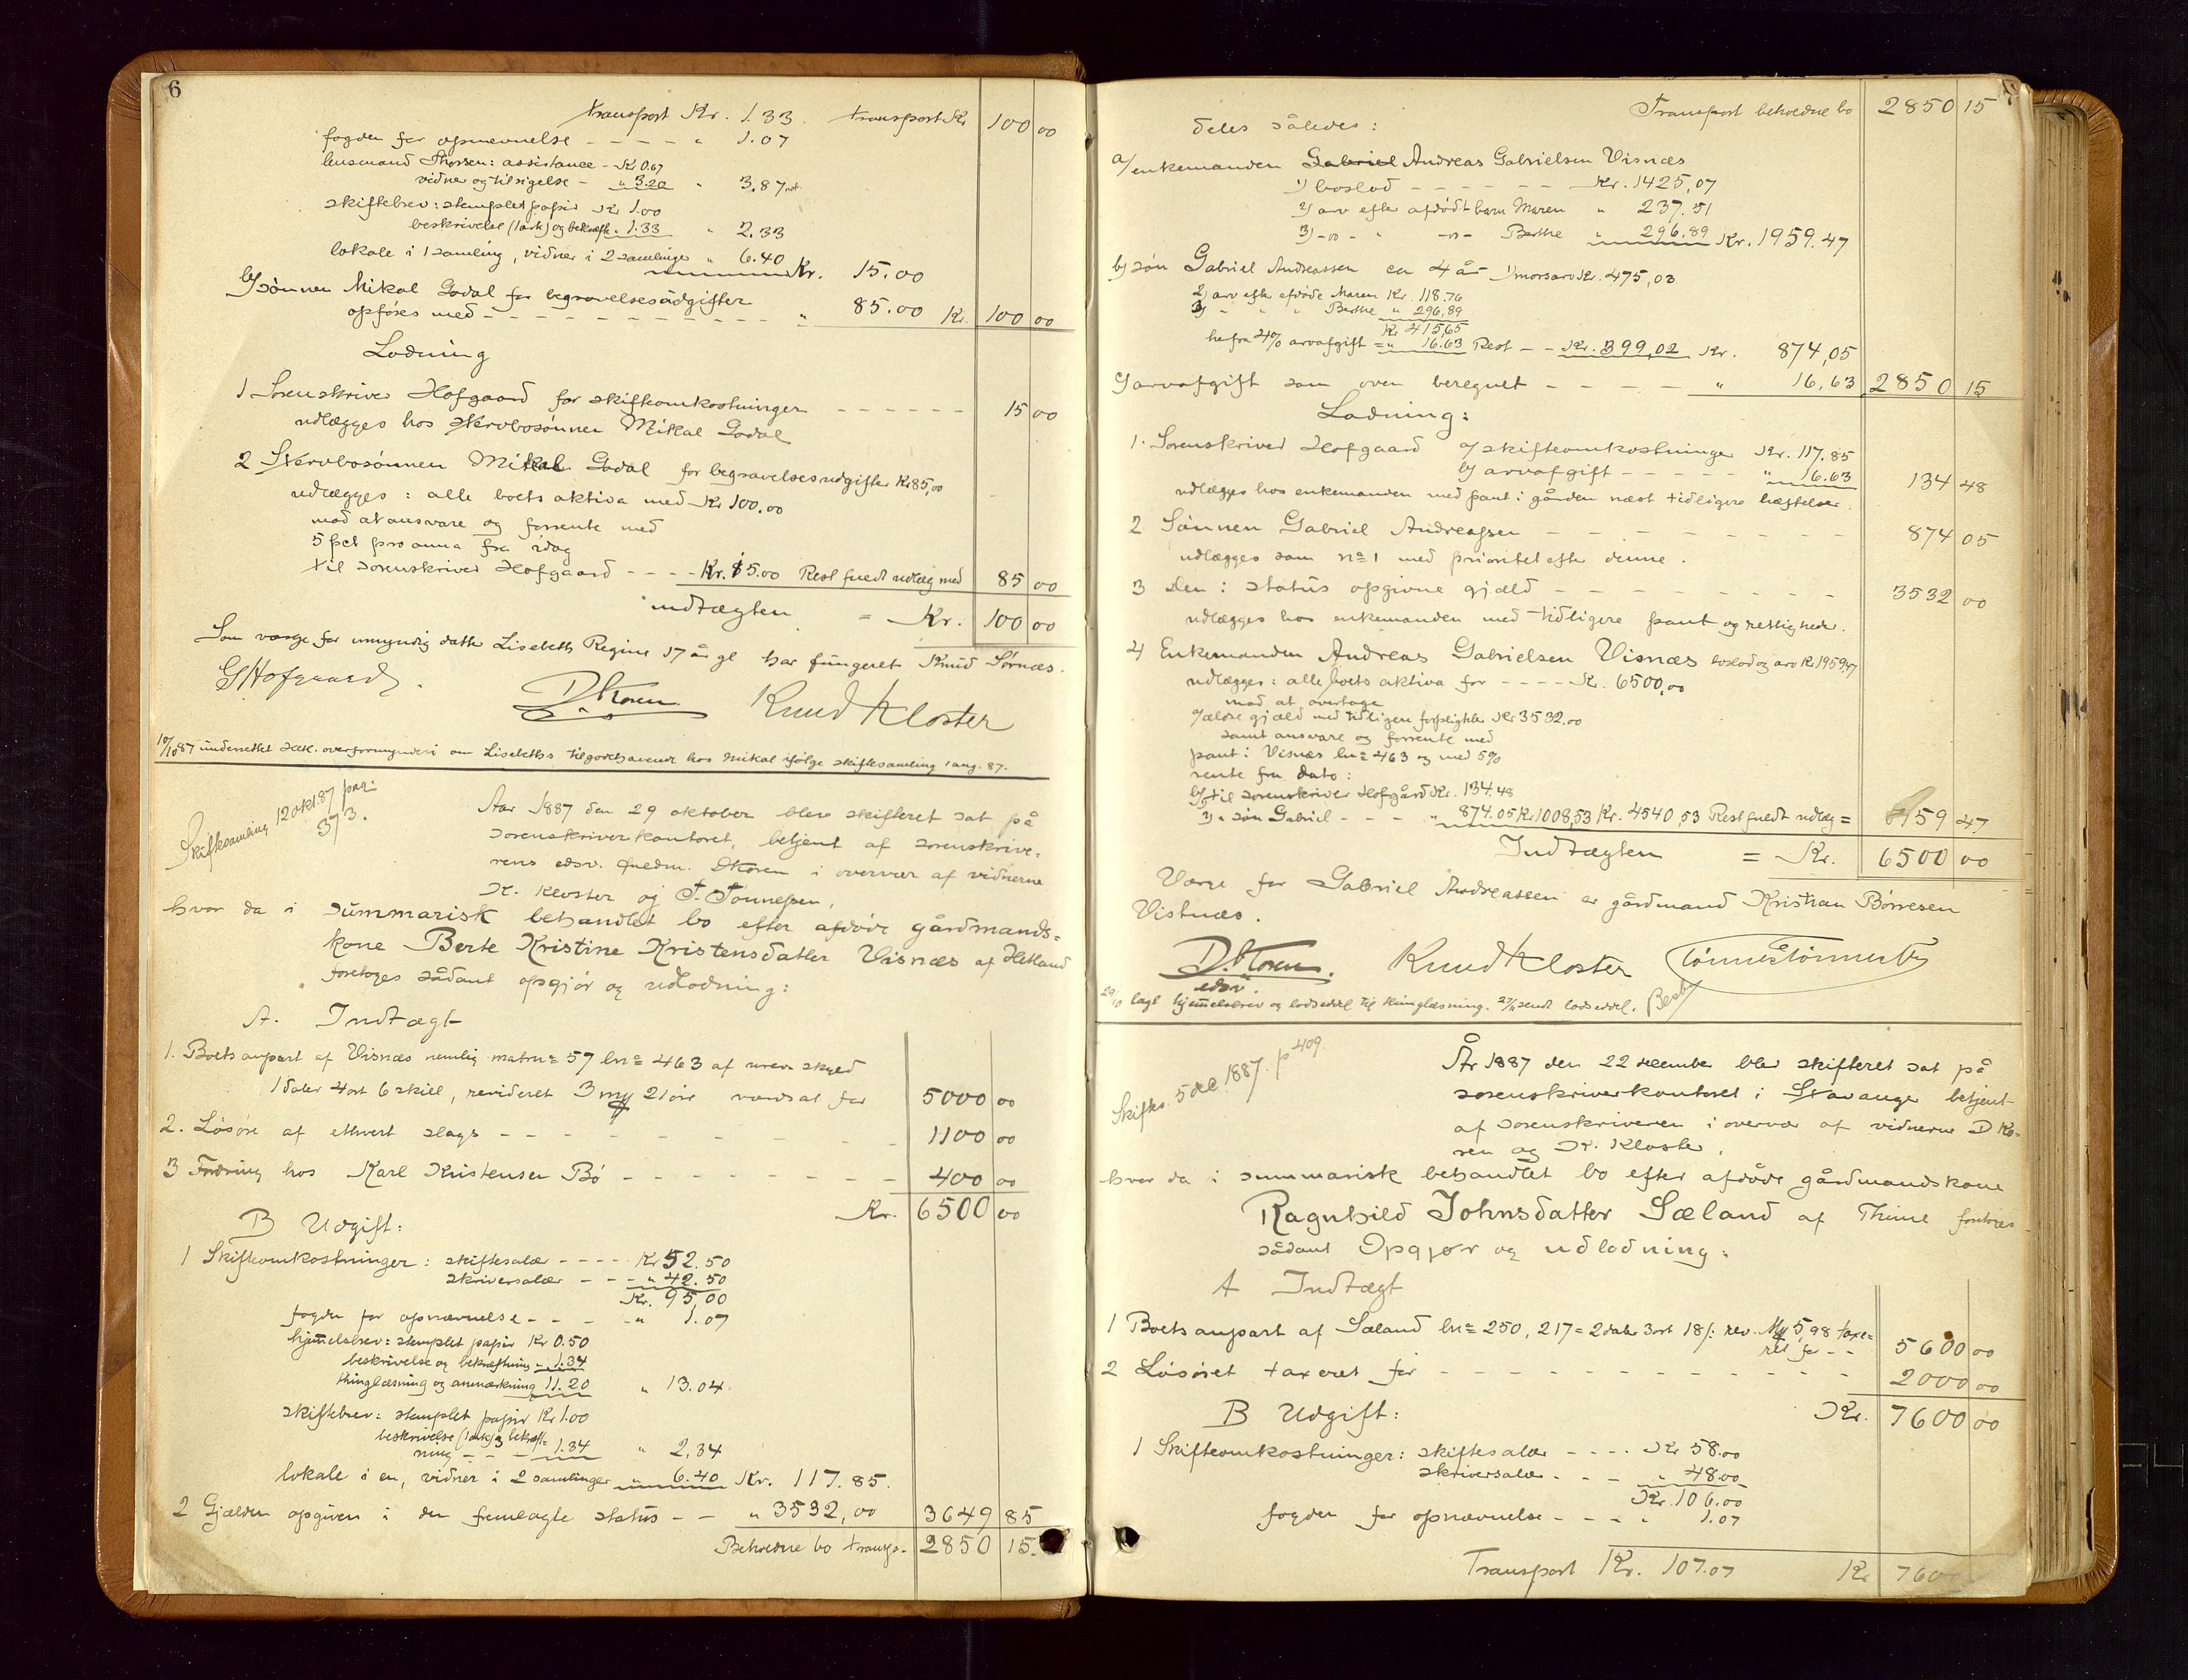 6
transport Kr. 1.33. transport Kr 100 00
fogden for opnævnelse - - - - " 1.07
lensmand Thorsen: assistance - Kr 0.67
vidner og tilsigelse - " 3.20 " 3.87
skiftebrev: stemplet papir Kr 1.00
beskrivelse (1 ark) og bekræft. " 1.33 " 2.33
lokale i 1 samling, vidner i 2 samlinger " 6.40 Kr. 15.00
b) sønnen Mikal Godal for begravelsesudgifter
opføres med - - - - - - - - - - - " 85.00 Kr. 100 00
Lodning
1 Sorenskriver Hofgaard for skifteomkostninger - - - - - - 15 00
udlægges hos stervbosønnen Mikal Godal
2 Stervbosønnen Mikal Godal for begravelsesudgifter Kr 85,00
udlægges: alle boets aktiva med Kr 100.00
mod at ansvare og forrente med
5 pct pro anno fra idag
til sorenskriver Hofgaard - - - - Kr. 15.00 Rest fuldt udlæg med 85 00
indtægten = Kr. 100 00
Som værge for umyndig datter Lisebeth Regine 17 år gl har fungeret Knud Sørnæs.
GHofgaard. D. Koren Knud Kloster
10/10 87 underrettet Hetl. overformynderi om Lisebeths tilgodehavende hos Mikal ifølge skiftesamling 1 aug. 87.
Skiftesamling 12 okt. 87 pag:
373.
Aar 1887 den 29 oktober blev skifteret sat på
sorenskriverkontoret, betjent af sorenskrive-
rens edsv. fuldm. D Koren i overvær af vidnerne
K. Kloster og T. Tønnessen,
hvor da i summarisk behandlet bo efter afdøde gårdmands-
kone Berte Kristine Kristensdatter Visnæs af Hetland
foretoges sådant opgjør og udlodning:
A. Indtægt
1. Boets anpart af Visnæs nemlig matrn= 57 ln= 463 af urev. skyld
1 daler 4 ort 6 skill, revideret 3 my 21 øre værdsat for 5000 00
2. Løsøre af ethvert slags - - - - - - - - - 1100 00
3 Fordring hos Karl Kristensen Bø - - - - - - - - 400 00
Kr. 6500 00
B Udgift:
1 Skifteomkostninger: skiftesalær - - - - Kr 52.50
skriversalær - - - " 42.50
Kr. 95,00
fogden for opnævnelse - - - - " 1.07
hjemmelsbrev: stemplet papir Kr 0.50
beskrivelse og bekræftning " 1.34
thinglæsning og anmærkning 11.20 " 13.04
skiftebrev: stemplet papir Kr 1.00
beskrivelse (1 ark) og bekræft-
ning - - - 1.34 " 2,34
lokale i en, vidner i 2 samlinger " 6.40 Kr. 117.85.
2 Gjælden opgiven i den fremlagte status - - " 3532,00 3649 85
Beholdne bo transp. 2850 15.
7
Transport beholdne bo 2850 15
deles således:
a/ enkemanden Gabriel Andreas Gabrielsen Visnæs
1) boslod - - - - - - - Kr. 1425,07
2) arv efter afdødt barn Maren " 237.51
3) -"- " -"- Berthe " 296,89 Kr. 1959.47
b) søn Gabriel Andreassen ca 4 år 1) morsarv Kr. 475,03
2) arv efter afdøde Maren Kr. 118.76
3) " " " Berthe " 296,89
Kr 415,65
herfra 4% arvafgift = " 16.63 Rest - - Kr. 399,02 Kr. 874,05
c) arvafgift som oven beregnet - - - - - " 16.63 2850 15
Lodning:
1. Sorenskriver Hofgaard a/ skifteomkostninger Kr. 117.85
b) arvafgift - - - - - " 16.63 134 48
udlægges hos enkemanden med pant i gården næst tidligere hæftelser.
2 Sønnen Gabriel Andreassen - - - - - - - - 874 05
udlægges som n= 1 med prioritet efter denne.
3 Den i status opgivne gjæld - - - - - - - - 3532 00
udlægges hos enkemanden med tidligere pant og rettigheder.
4 Enkemanden Andreas Gabrielsen Visnæs boslod og arv Kr 1959,47
udlægges: alle boets aktiva for - - - - Kr. 6500,00
mod at overtage
a/ ældre gjæld med tidligere forpligtelser Kr 3532.00
samt ansvare og forrente med
pant i Visnæs ln= 463 og med 5%
rente fra dato:
b) til sorenskriver Hofgård Kr. 134.48
2) " søn Gabriel - - - - " 874.05 Kr 1008,53 Kr. 4540,53 Rest fuldt udlæg = 1959 47
Indtægten = Kr. 6500 00
Værge for Gabriel Andreassen er gårdmand Kristian Børresen
Vistnæs.
D. Koren. Knud Kloster Tønnes Tønnessen
edsv.
29/10 lagt hjemmelsbrev og lodseddel til thinglæsning. 27/11 sendt lodseddel.
Skifte. 5 dec. 1887. p 409.
År 1887 den 22 december blev skifteret sat på
sorenskriverkontoret i Stavanger betjent
af sorenskriveren i overvær af vidnerne D Ko-
ren og K. Kloster,
hvor da i summarisk behandlet bo efter afdøde gårdmandskone
Ragnhild Johnsdatter Sæland af Thime foretoges
sådant Opgjør og udlodning:
A Indtægt
1 Boets anpart af Sæland ln= 250, 217 = 2 daler 3 ort 18 /: rev. My 5,98 taxe-
ret for - - 5600 00
2 Løsøret taxeret for - - - - - - - - - - - 2000 00
B Udgift: Kr. 7600 00
1 Skifteomkostninger: skiftesalær - - - - Kr 58.00
skriversalær - - - - " 48.00
Kr. 106.00
fogden for opnævnelse - - - - " 1.07
Transport Kr. 107.07 Kr 7600